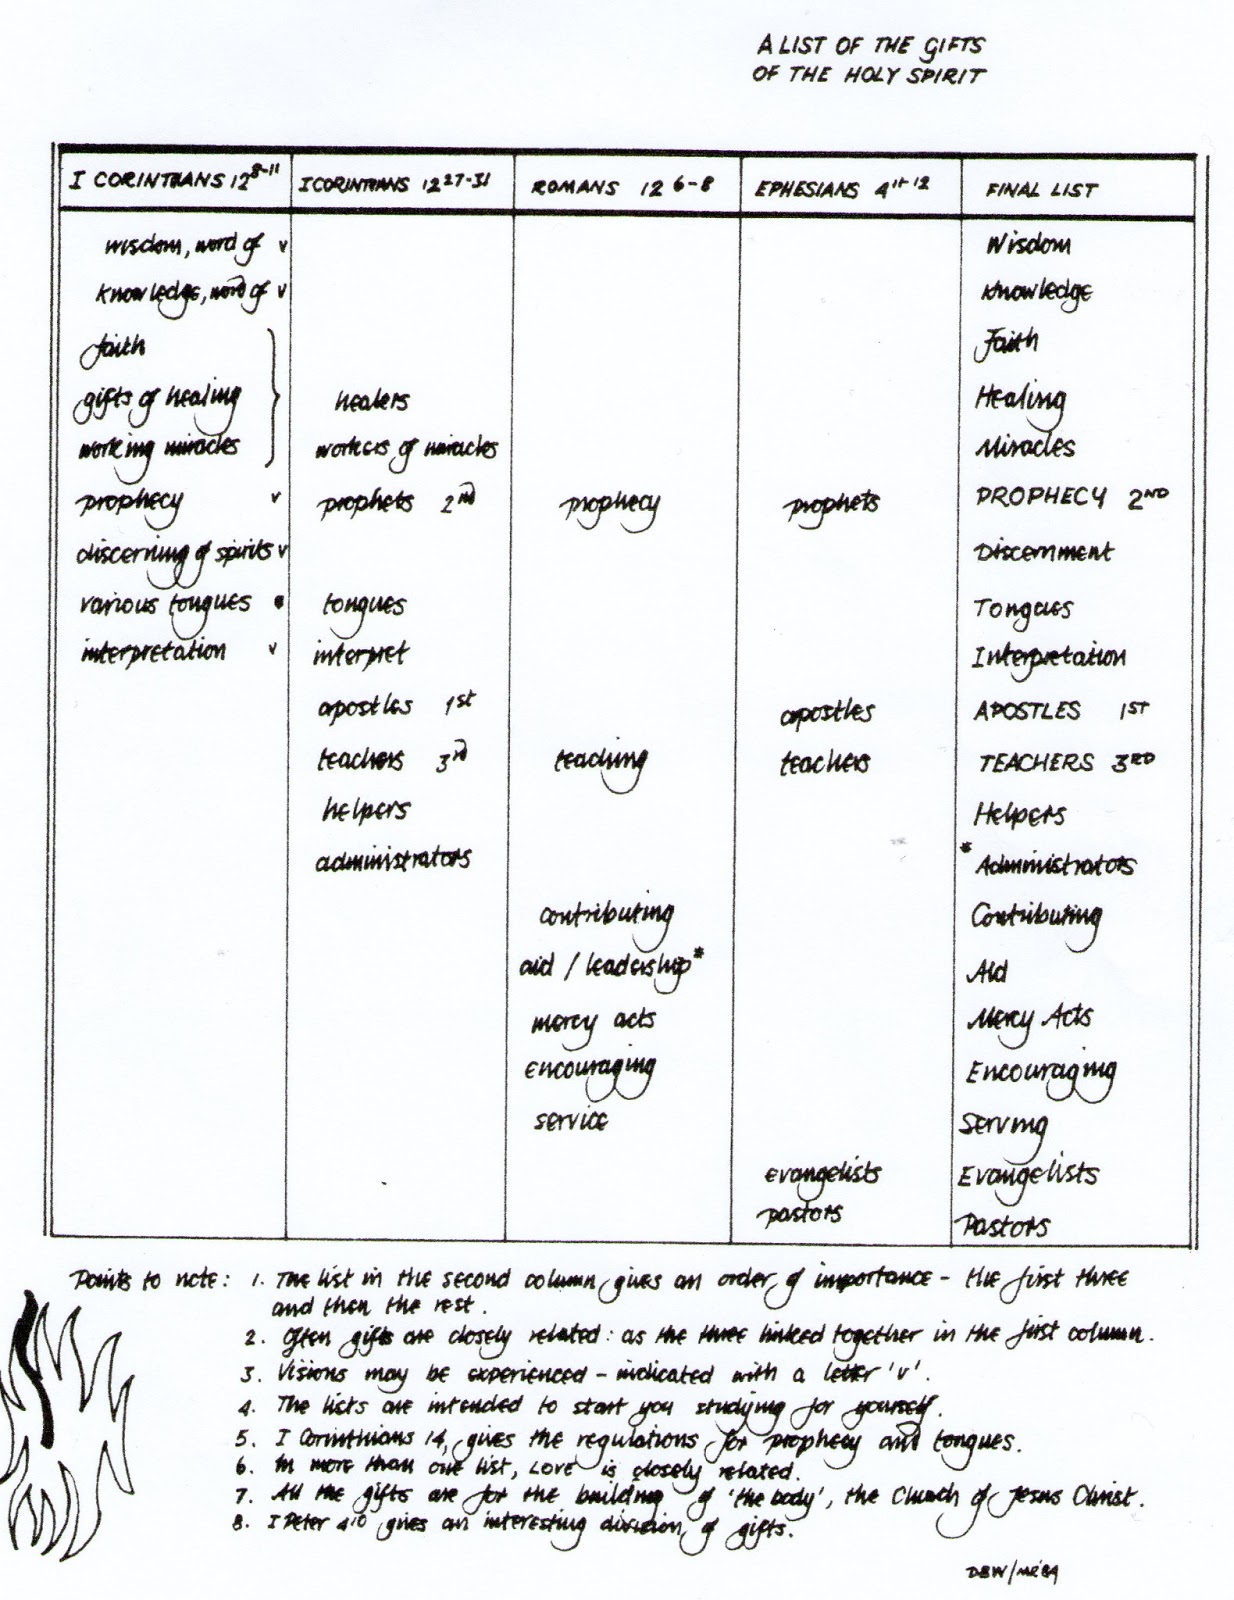 A LIST OF THE GIFTS
OF THE HOLY SPIRIT
I CORINTHIANS 12 8-11 I CORINTHIANS 12 27-31 ROMANS 12 6-8 EPHESIANS 4 11-12 FINAL LIST
wisdom, word of v Wisdom
knowledge, word of v Knowledge
faith Faith
gifts of healing healers Healing
working miracles workers of miracles Miracles
prophecy v prophets 2nd prophecy prophets PROPHECY 2ND
discerning of spirits v Discernment
various tongues • tongues Tongues
interpretation v interpret Interpretation
apostles 1st apostles APOSTLES 1ST
teachers 3rd teaching teachers TEACHERS 3RD
helpers Helpers
administrators * Administrators
contributing Contributing
aid / leadership* Aid
mercy acts Mercy Acts
encouraging Encouraging
service Serving
evangelists Evangelists
pastors Pastors
Points to note: 1. The list in the second column, gives an order of importance - the first three
and then the rest.
2. Often gifts are closely related: as the three linked together in the first column.
3. Visions may be experienced - indicated with a letter 'v'.
4. The lists are intended to start you studying for yourself.
5. I Corinthians 14, gives the regulations for prophecy and tongues.
6. In more than one list, LOVE is closely related.
7. All the gifts are for the building of 'the body', the Church of Jesus Christ.
8. I Peter 4:10 gives an interesting division of gifts.